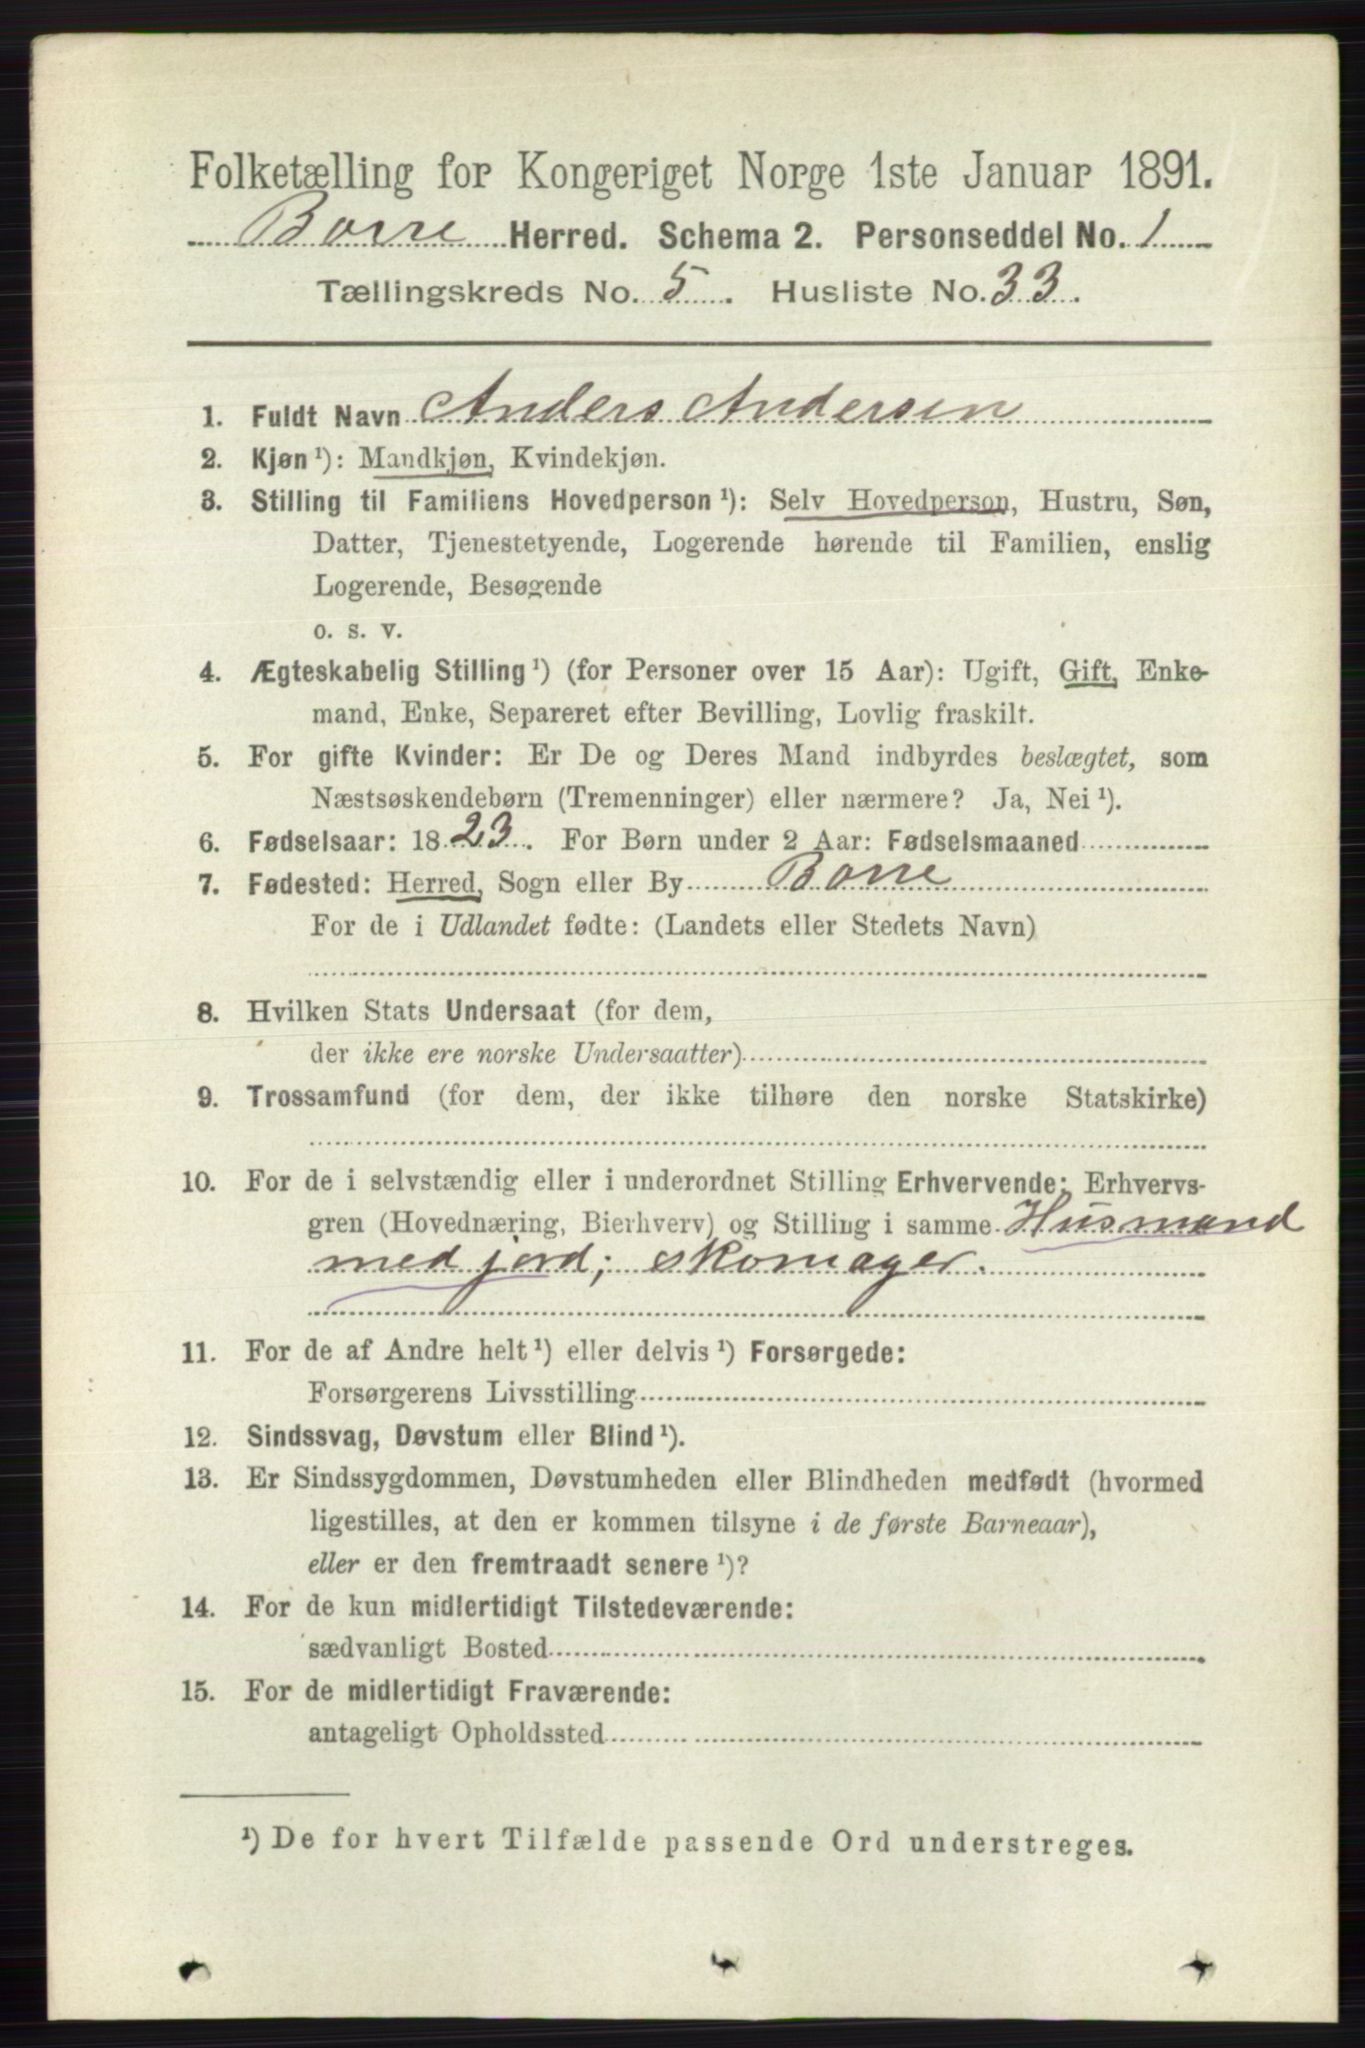 Folketælling for Kongeriget Norge 1ste Januar 1891.
Borre Herred. Schema 2. Personseddel No. 1
Tællingskreds No. 5. Husliste No. 33.
1. Fuldt Navn Anders Andersen
2. Kjøn ¹): Mandkjøn, Kvindekjøn.
3. Stilling til Familiens Hovedperson ¹): Selv Hovedperson, Hustru, Søn,
Datter, Tjenestetyende, Logerende hørende til Familien, enslig
Logerende, Besøgende
o. s. v.
4. Ægteskabelig Stilling ¹) (for Personer over 15 Aar): Ugift, Gift, Enke-
mand, Enke, Separeret efter Bevilling, Lovlig fraskilt.
5. For gifte Kvinder: Er De og Deres Mand indbyrdes beslægtet, som
Næstsøskendebørn (Tremenninger) eller nærmere? Ja, Nei ¹).
6. Fødselsaar: 1823. For Børn under 2 Aar: Fødselsmaaned
7. Fødested: Herred, Sogn eller By Borre
For de i Udlandet fødte: (Landets eller Stedets Navn)
8. Hvilken Stats Undersaat (for dem,
der ikke ere norske Undersaatter)
9. Trossamfund (for dem, der ikke tilhøre den norske Statskirke)
10. For de i selvstændig eller i underordnet Stilling Erhvervende: Erhvervs-
gren (Hovednæring, Bierhverv) og Stilling i samme Husmand
med jord; skomager.
11. For de af Andre helt ¹) eller delvis ¹) Forsørgede:
Forsørgerens Livsstilling
12. Sindssvag, Døvstum eller Blind ¹).
13. Er Sindssygdommen, Døvstumheden eller Blindheden medfødt (hvormed
ligestilles, at den er kommen tilsyne i de første Barneaar),
eller er den fremtraadt senere ¹)?
14. For de kun midlertidigt Tilstedeværende:
sædvanligt Bosted
15. For de midlertidigt Fraværende:
antageligt Opholdssted
¹) De for hvert Tilfælde passende Ord understreges.